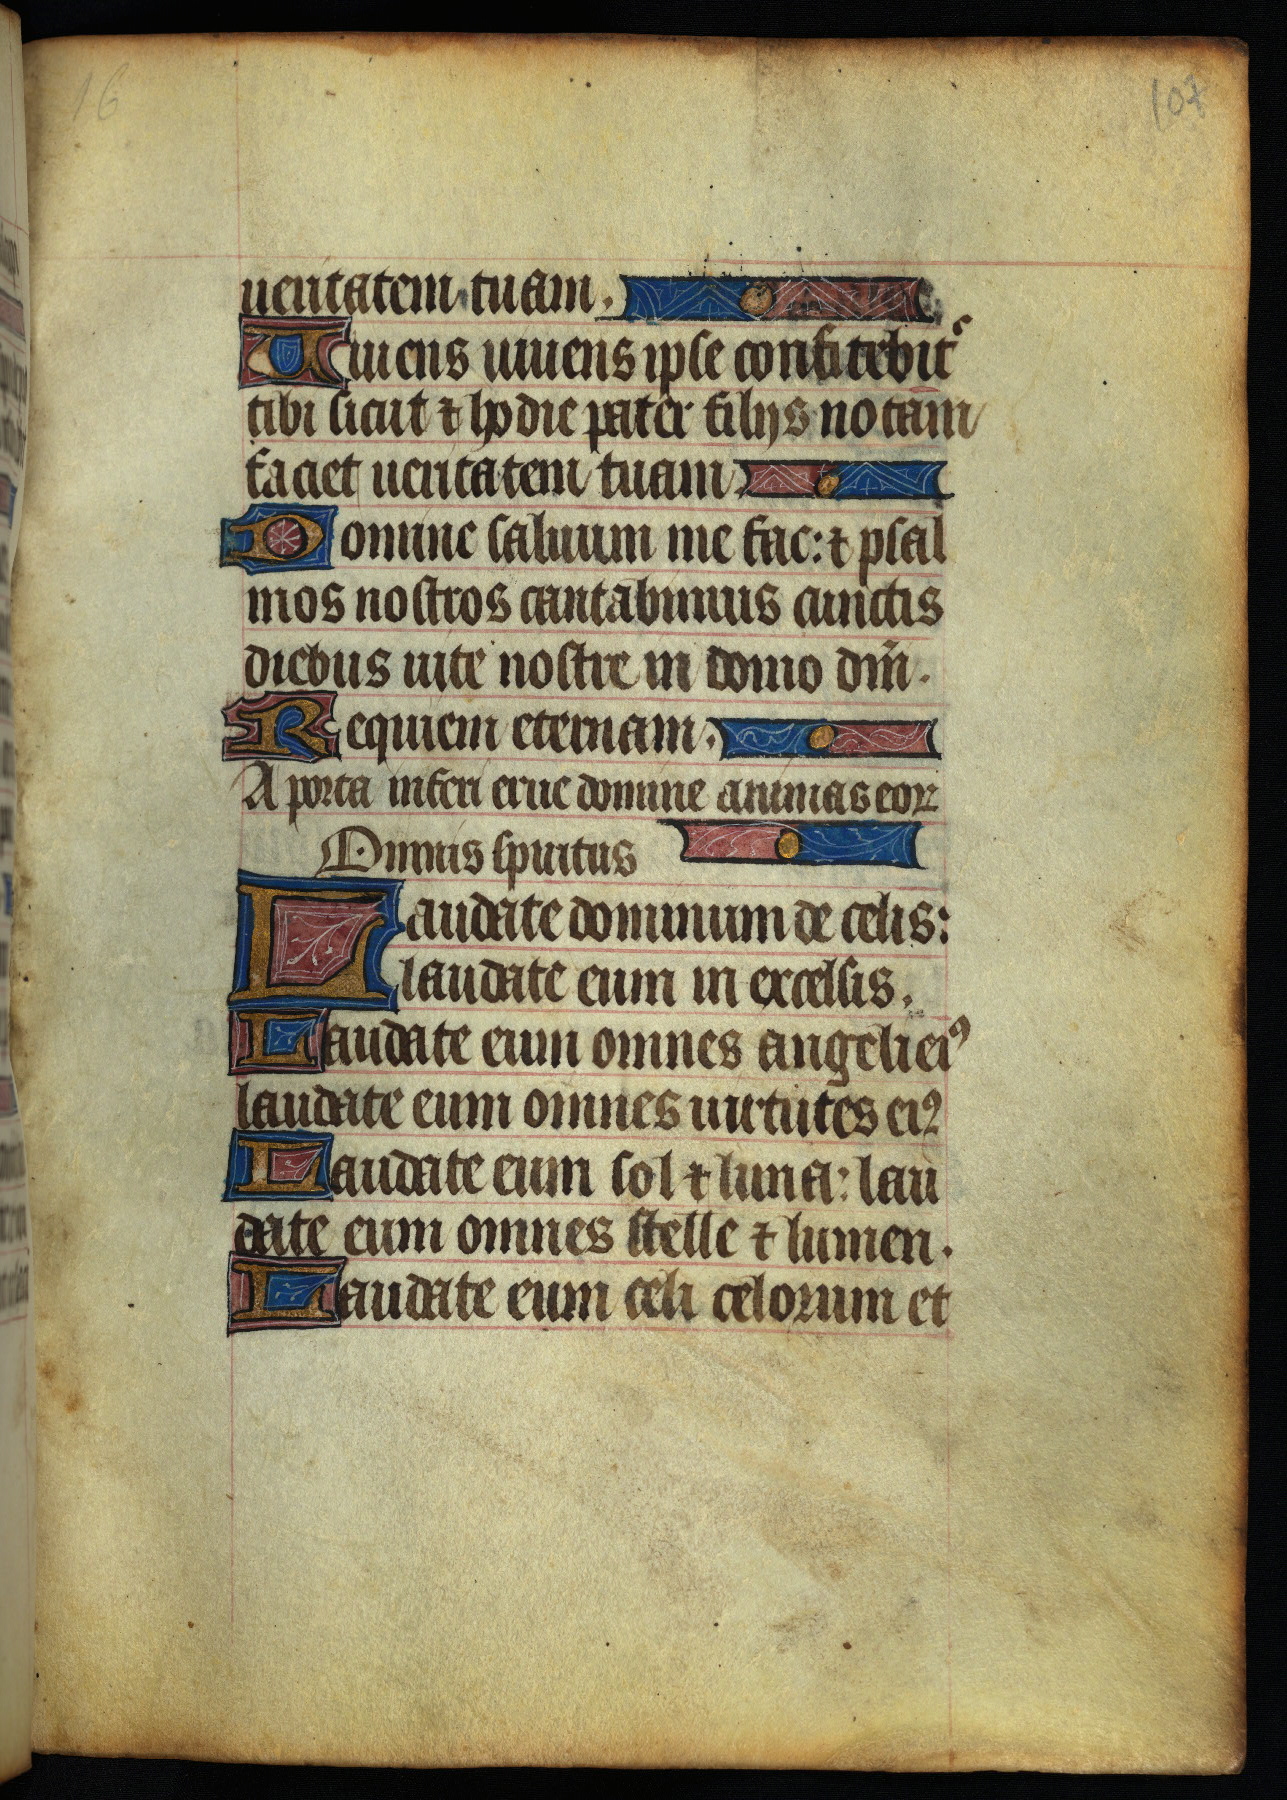 16
107
ueritatem tuam.
Uiuens uiuens ipse confitebit᷑
tibi sicut ⁊ hodie pater filijs notam
faciet ueritatem tuam.
Domine saluum me fac: ⁊ psal
mos nostros cantabimus cunctis
diebus uite nostre in domo dñi.
Requiem eternam.
A porta inferi erue domine animas eoꝝ
Omnis spiritus
Laudate dominum de celis:
laudate eum in excelsis.
Laudate eum omnes angeli eiꝰ
laudate eum omnes uirtutes eiꝰ
Laudate eum sol ⁊ luna: lau
date eum omnes stelle ⁊ lumen.
Laudate eum celi celorum et